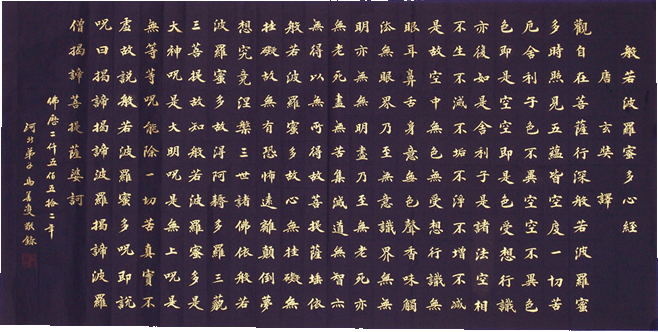 般若波羅蜜多心經
唐 玄奘 譯
觀自在菩薩行深般若波羅蜜
多時照見五蘊皆空度一切苦
厄舍利子色不異空空不異色
色即是空空即是色受想行識
亦復如是舍利子是諸法空相
不生不滅不垢不淨不增不減
是故空中無色無受想行識無
眼耳鼻舌身意無色聲香味觸
法無眼界乃至無意識界無無
明亦無無明盡乃至無老死亦
無老死盡無苦集滅道無智亦
無得以無所得故菩提薩埵依
般若波羅蜜多故心無挂礙無
挂礙故無有恐怖遠離顛倒夢
想究竟涅槃三世諸佛依般若
波羅蜜多故得阿耨多羅三藐
三菩提故知般若波羅蜜多是
大神呪是大明呪是無上呪是
無等等呪能除一切苦真實不
虛故說般若波羅蜜多呪即說
呪曰揭諦揭諦波羅揭諦波羅
僧揭諦菩提薩婆訶
佛曆二仟五佰五拾二年
弟子馬敬錄